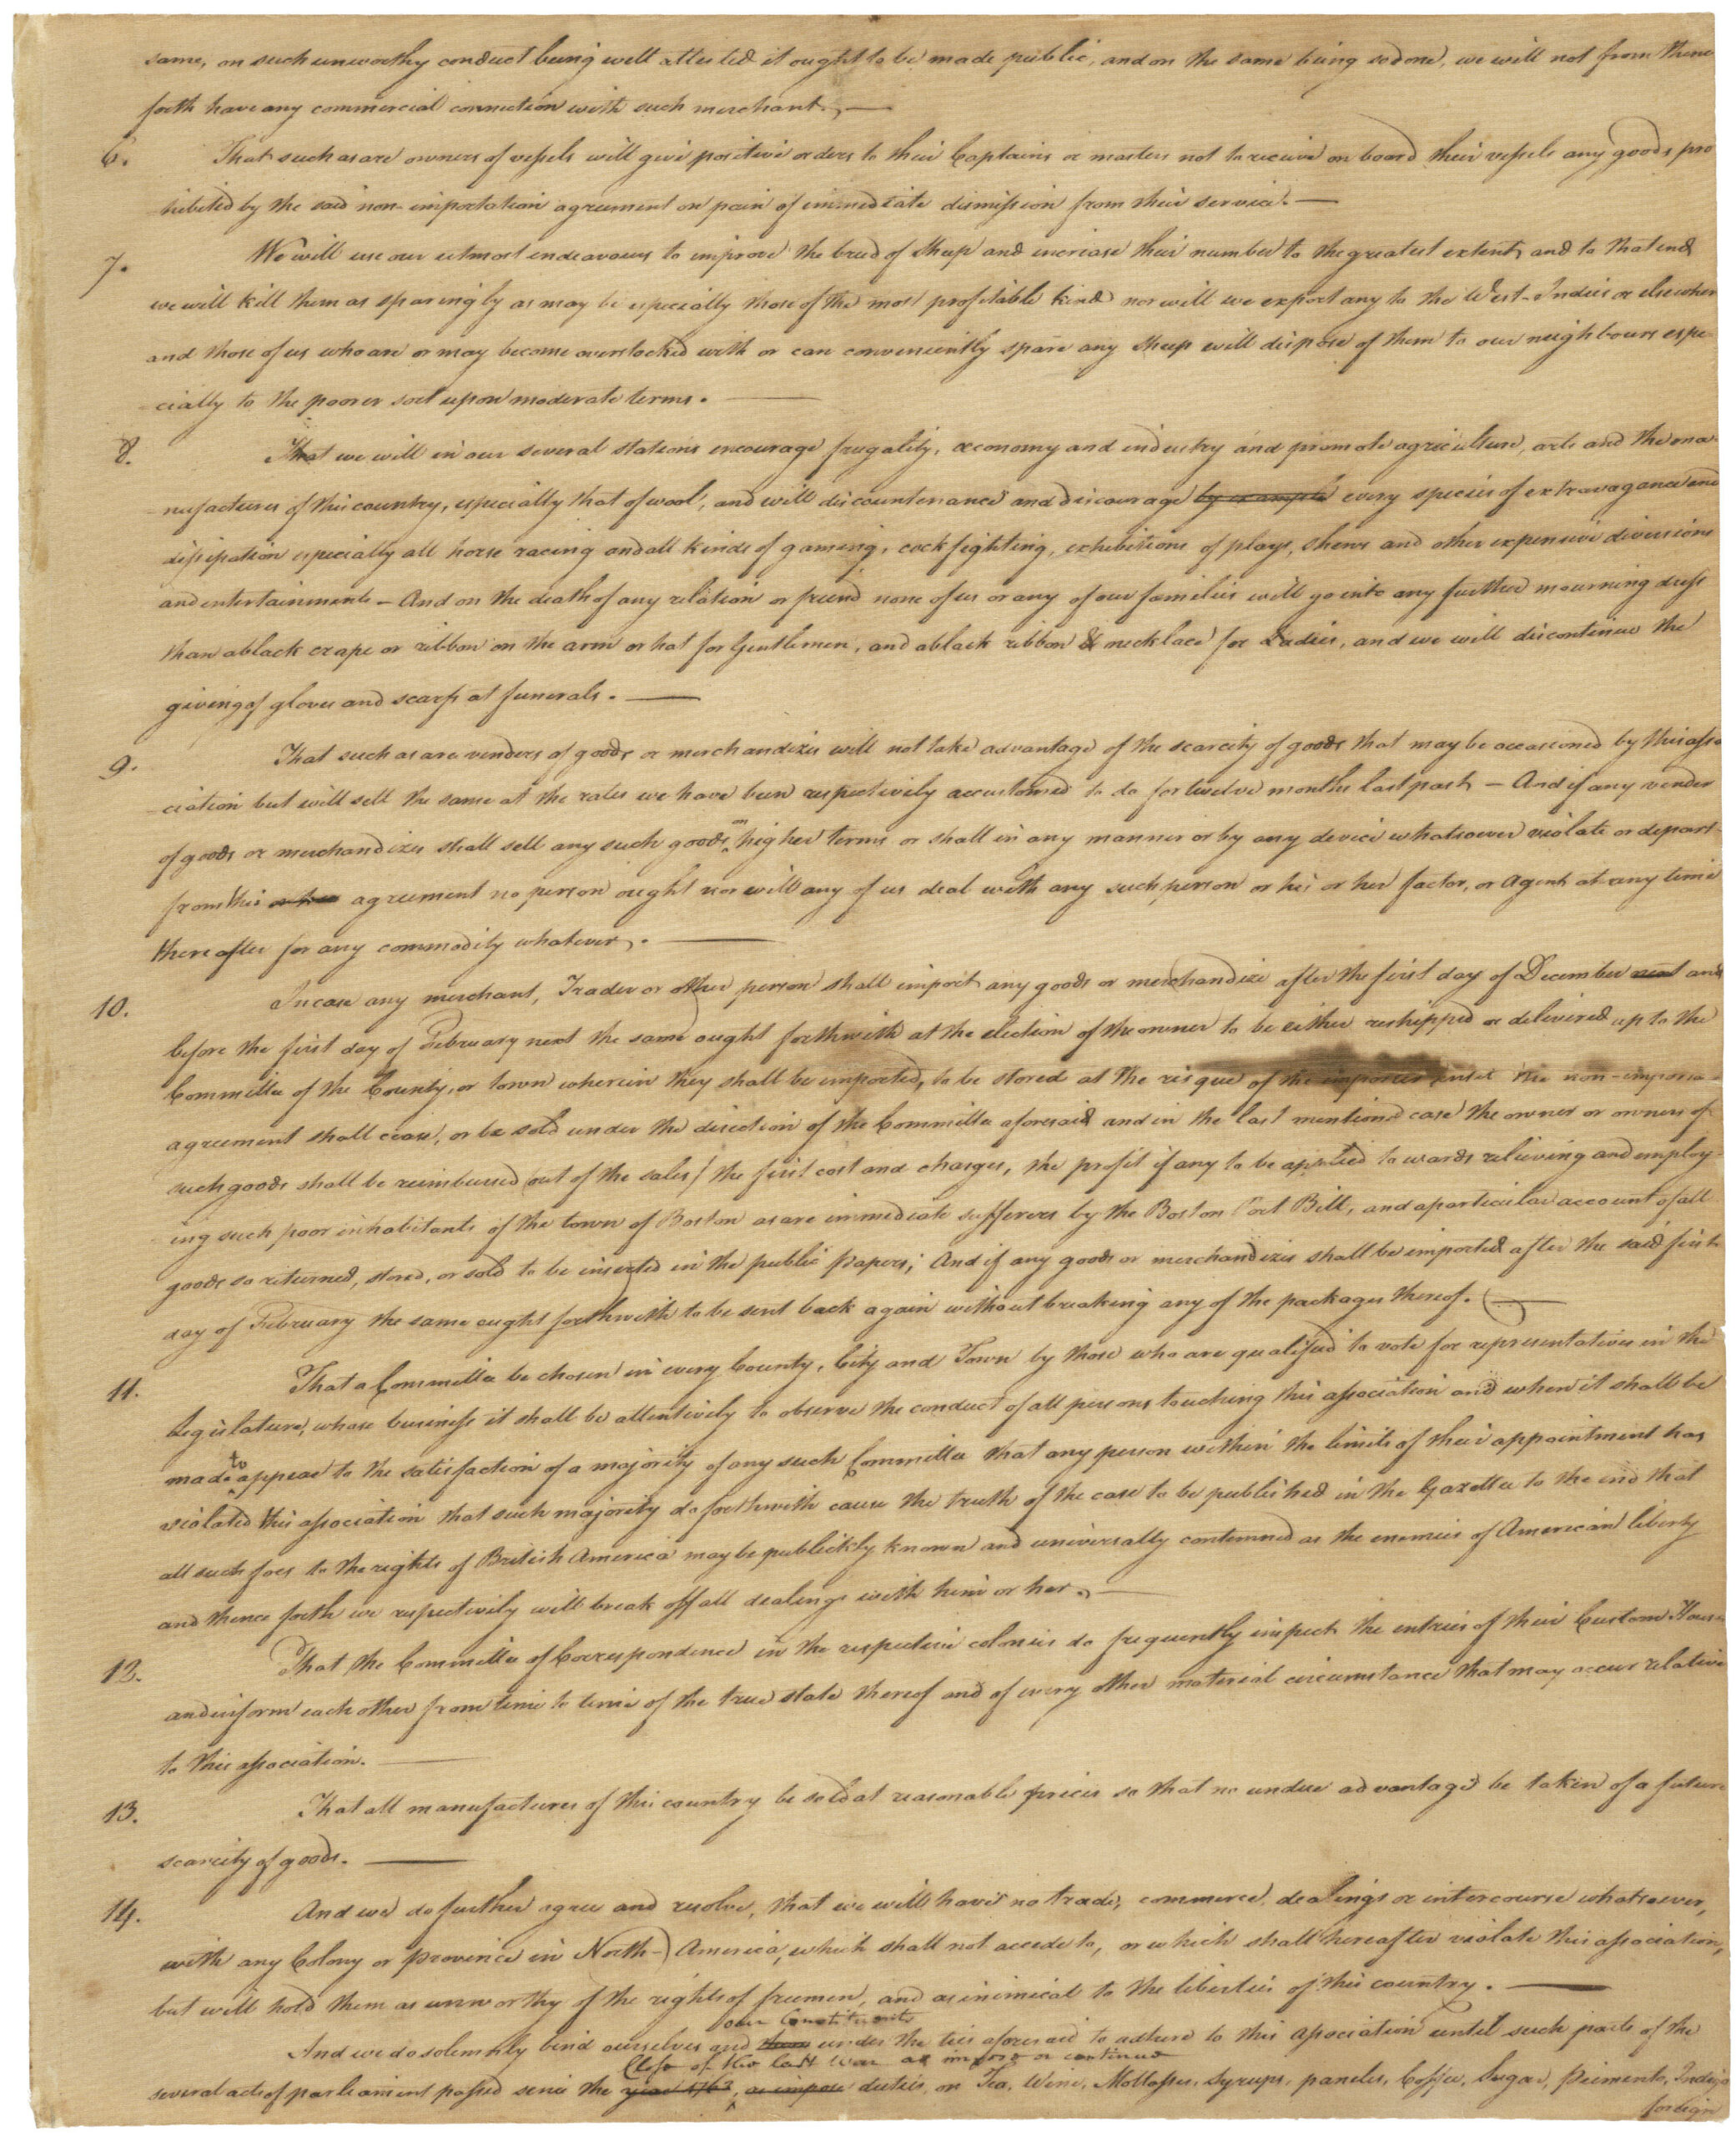 same, on such unworthy conduct being well attested it ought to be made public, and on the same being so done, we will not from thence
forth have any commercial connection with such merchant. —
6. That such as are owners of vessels will give positive orders to their Captains or masters not to receive on board their vessels any goods pro
hibited by the said non-importation agreement on pain of immediate dismission from their service. —
7. We will use our utmost endeavours to improve the breed of Sheep and increase their number to the greatest extent, and to that end
we will kill them as sparingly as may be especially those of the most profitable kind nor will we export any to the West-Indies or elsewhere
and those of us who are or may become overstocked with or can conveniently spare any sheep will dispose of them to our neighbours espe
cially to the poorer sort upon moderate terms. —
8. That we will in our several stations encourage frugality, œconomy and industry and promote agriculture, arts and the ma-
nufactures of this country, especially that of wool, and will discountenance and discourage by example every species of extravagance and
dissipation especially all horse racing and all kinds of gaming, cock fighting, exhibitions of plays, shews and other expensive diversions
and entertainments – And on the death of any relation or friend none of us or any of our families will go into any further mourning dress
than a black crape or ribbon on the arm or hat for Gentlemen, and a black ribbon & necklace for Ladies, and we will discontinue the
giving of gloves and scarfs at funerals. —
9. That such as are venders of goods or merchandizes will not take advantage of the scarcity of goods that may be occasioned by this asso
ciation but will sell the same at the rates we have been respectively accustomed to do for twelve months last past – And if any vender
of goods or merchandizes shall sell any such goods on higher terms or shall in any manner or by any device whatsoever violate or depart
from this agreement no person ought nor will any of us deal with any such person or his or her factor, or Agent at any time
thereafter for any commodity whatever. —
10. In case any merchant, Trader or other person shall import any goods or merchandize after the first day of December next and
before the first day of February next the same ought forthwith at the election of the owner to be either reshipped or delivered up to the
Committee of the County, or town wherein they shall be imported, to be stored at the risque of the importer until the non-importa-
agreement shall cease, or be sold under the direction of the Committee aforesaid and in the last mentioned case the owner or owners of
such goods shall be reimbursed (out of the sales) the first cost and charges, the profit if any to be applied towards relieving and employ
ing such poor inhabitants of the town of Boston as are immediate sufferers by the Boston Port Bill, and a particular account of all
goods so returned, stored, or sold to be inserted in the public papers; And if any goods or merchandizes shall be imported after the said first
day of February the same ought forthwith to be sent back again without breaking any of the packages thereof. —
11. That a Committee be chosen in every County, City and Town by those who are qualified to vote for representatives in the
legislature, whose business it shall be attentively to observe the conduct of all persons touching this association and when it shall be
made to appear to the satisfaction of a majority of any such Committee that any person within the limits of their appointment has
violated this association that such majority do forthwith cause the truth of the case to be published in the Gazette to the end that
all such foes to the rights of British America may be publickly known and universally contemned as the enemies of American liberty
and thence forth we respectively will break off all dealings with him or her. —
12. That the Committee of Correspondence in the respective colonies do frequently inspect the entries of their Custom House
and inform each other from time to time of the true state thereof and of every other material circumstance that may occur relative
to this association. —
13. That all manufactures of this country be sold at reasonable prices so that no undue advantage be taken of a future
scarcity of goods. —
14. And we do further agree and resolve, that we will have no trade, commerce, dealings or intercourse whatsoever,
with any Colony or province in North-America, which shall not accede to, or which shall hereafter violate this association,
but will hold them as unworthy of the rights of freemen, and as inimical to the liberties of this country. —
our Constituents
And we do solemnly bind ourselves and them under the ties aforesaid to adhere to this Association until such parts of the
Close of the last War as impose or continue
several acts of parliament passed since the year 1763, as impose duties on Tea, Wine, Mollasses, Syrups, paneles, Coffee, Sugar, Piemento, Indigo
foreign